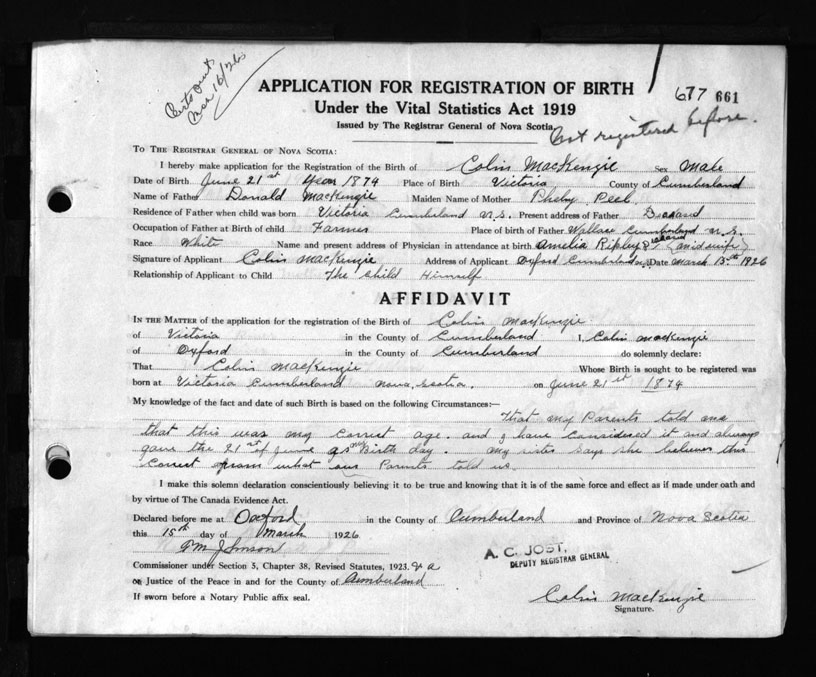 Certs Out
Mar 16/26
APPLICATION FOR REGISTRATION OF BIRTH
677 661
Under the Vital Statistics Act 1919
Issued by The Registrar General of Nova Scotia
not registered before.
TO THE REGISTRAR GENERAL OF NOVA SCOTIA:
I hereby make application for the Registration of the Birth of Colin MacKenzie Sex Male
Date of Birth June 21st Year 1874 Place of Birth Victoria County of Cumberland
Name of Father Donald MacKenzie Maiden Name of Mother Pheby Peel
Residence of Father when child was born Victoria Cumberland N.S. Present address of Father
Occupation of Father at Birth of child Farmer Place of birth of Father Wallace Cumberland N.S.
Race White Name and present address of Physician in attendance at birth Amelia Ripley midwife
Signature of Applicant Colin MacKenzie Address of Applicant Oxford Cumberland Date March 15th 1926
Relationship of Applicant to Child The Child Himself
AFFIDAVIT
IN THE MATTER of the application for the registration of the Birth of Colin MacKenzie
of Victoria in the County of Cumberland I, Colin MacKenzie
of Oxford in the County of Cumberland do solemnly declare:
That Colin MacKenzie Whose Birth is sought to be registered was
born at Victoria Cumberland Nova Scotia on June 21st 1874
My knowledge of the fact and date of such Birth is based on the following Circumstances:—
That my Parents told me
that this was my correct age. and I have considered it and always
gave the 21st of June as my Birth day. my sister says she believes this
correct from what our Parents told us.
I make this solemn declaration conscientiously believing it to be true and knowing that it is of the same force and effect as if made under oath and
by virtue of The Canada Evidence Act.
Declared before me at Oxford in the County of Cumberland and Province of Nova Scotia
this 15th day of March 1926
Johnson
A. C. JOST,
DEPUTY REGISTRAR GENERAL
Commissioner under Section 3, Chapter 38, Revised Statutes, 1923. & a
or Justice of the Peace in and for the County of Cumberland
If sworn before a Notary Public affix seal.
Colin MacKenzie
Signature.